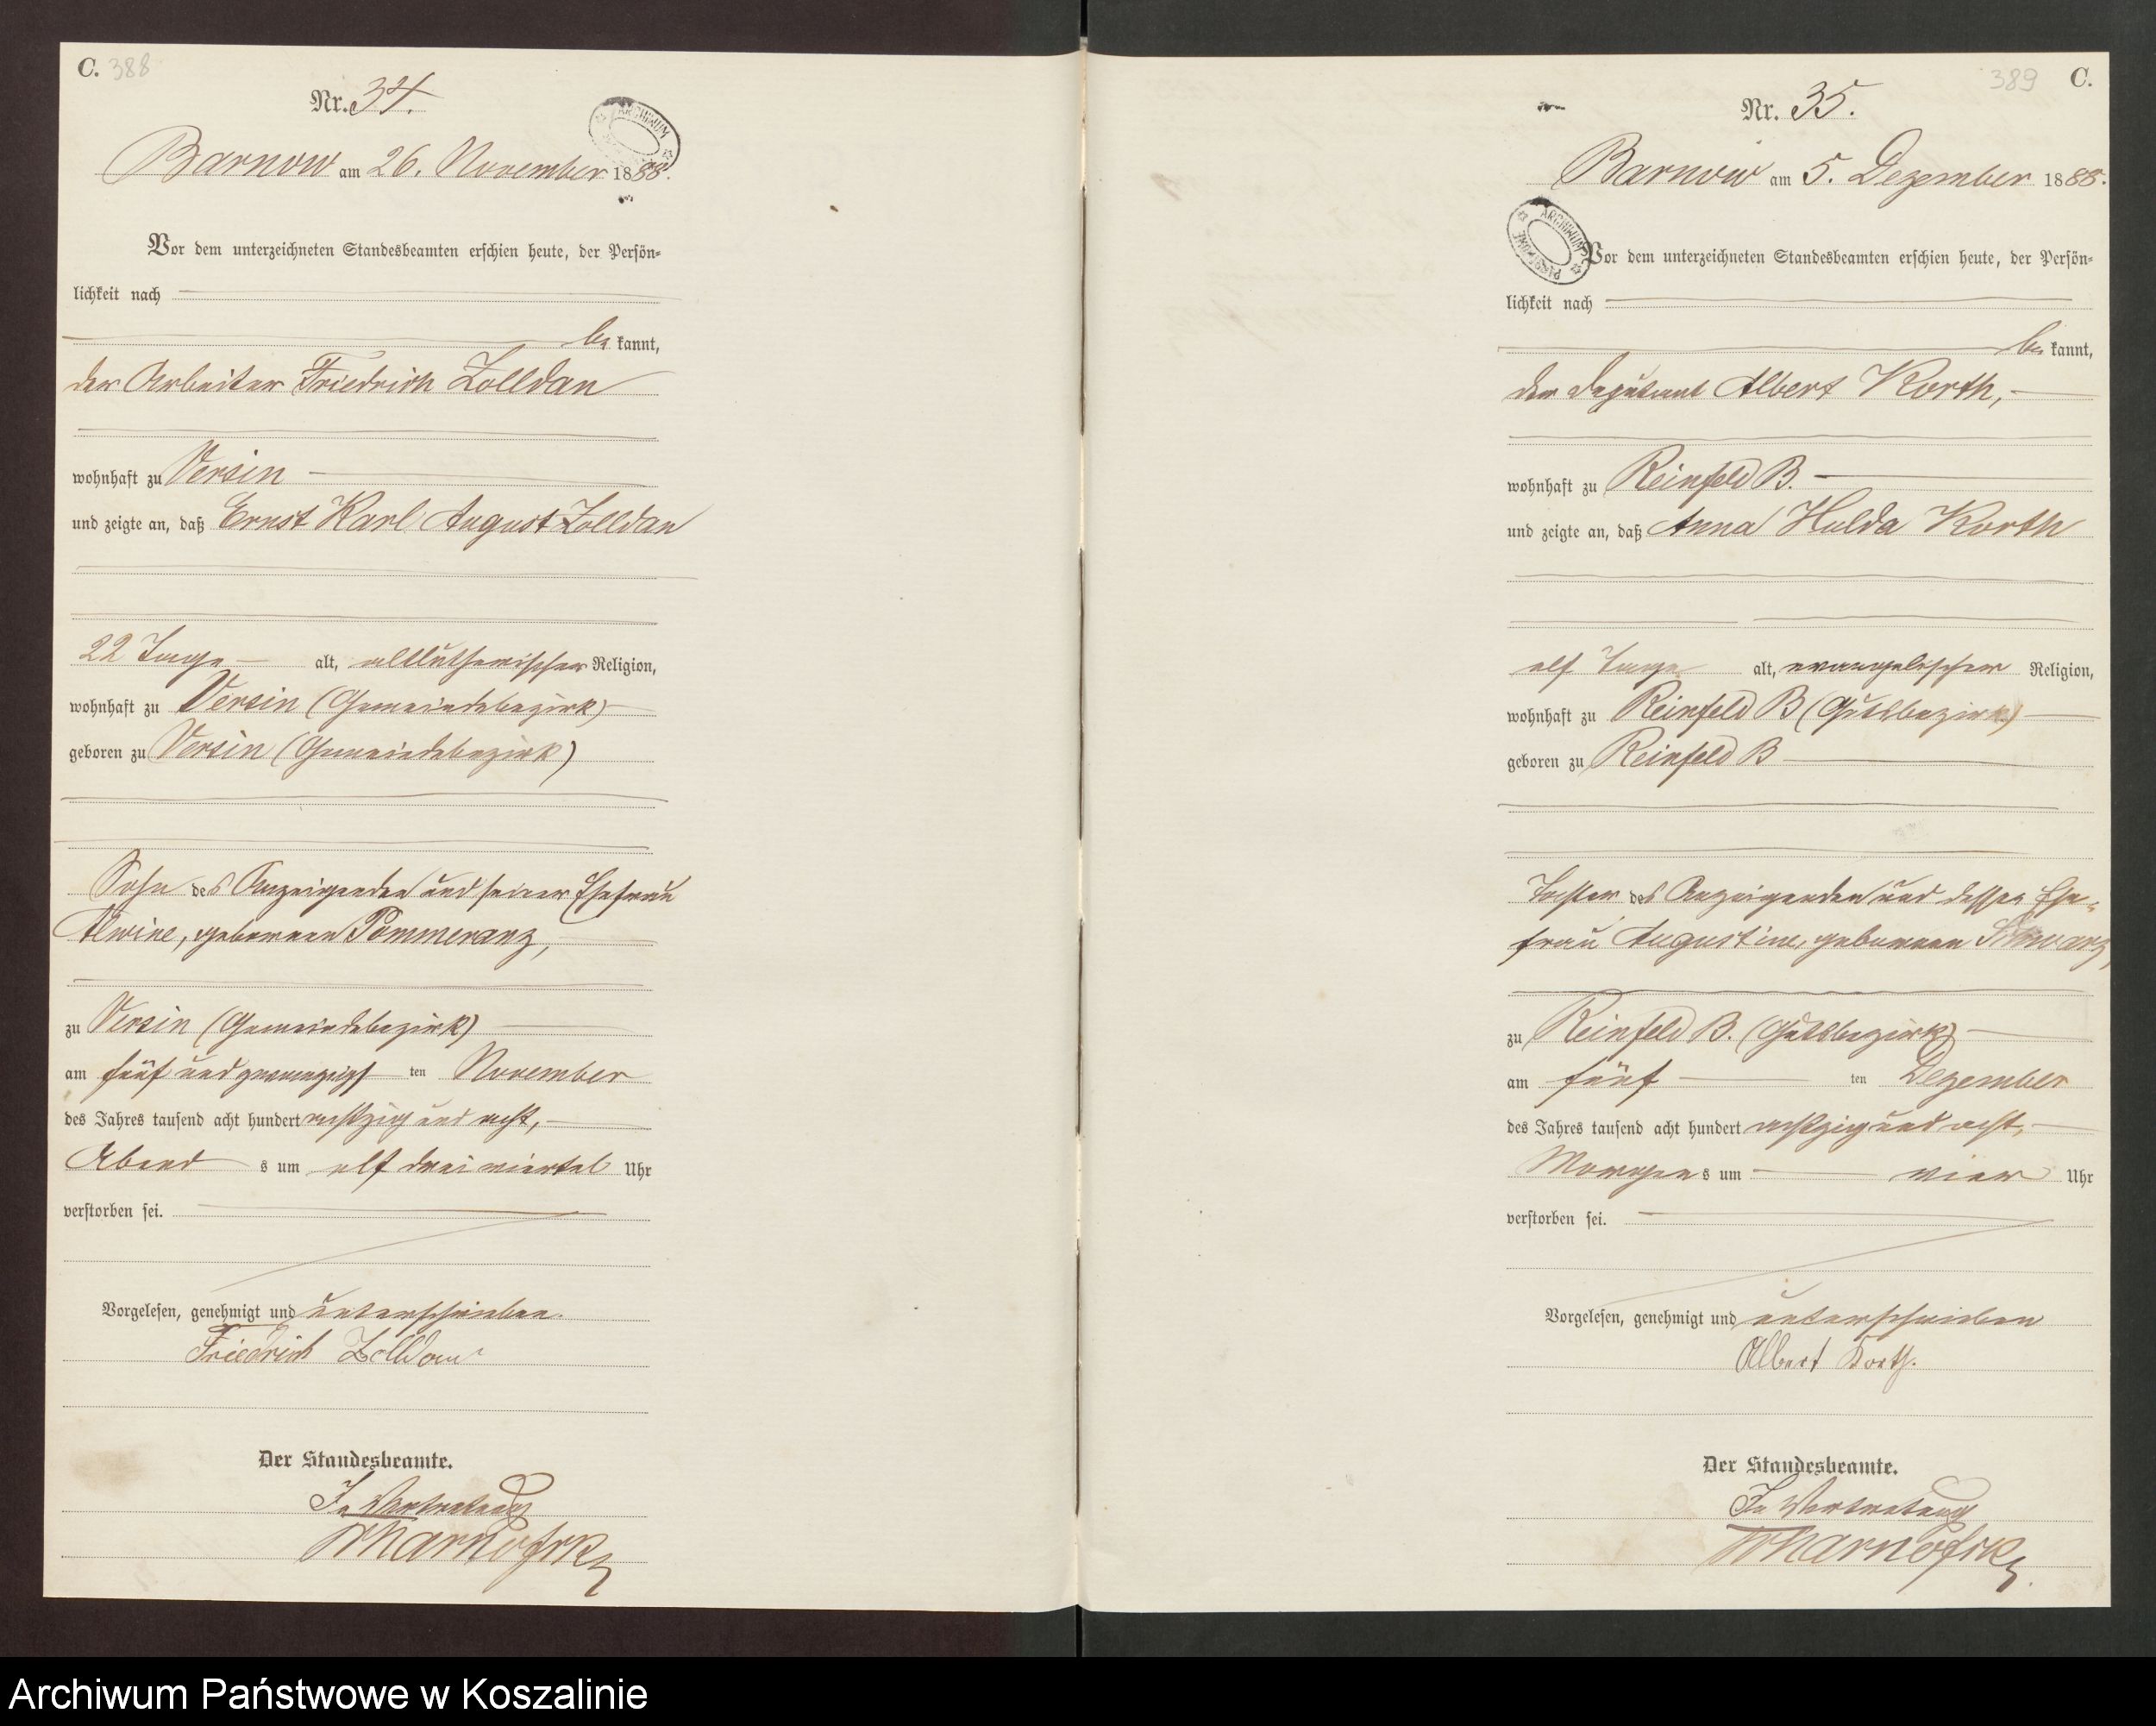 C. 388
Nr. 34.
Barnow am 26. November 1888.
Vor dem unterzeichneten Standesbeamten erschien heute, der Persön-
lichkeit nach
be kannt,
der Arbeiter Friedrich Zolldan
wohnhaft zu Versin
und zeigte an, daß Ernst Karl August Zolldan
22 Tage alt, altlutherischer Religion,
wohnhaft zu Versin (Gemeindebezirk)
geboren zu Versin (Gemeindebezirk)
Sohn des Anzeigenden und seiner Ehefrau
Alwine, geborenen Pommeranz,
zu Versin (Gemeindebezirk)
am fünf und zwanzigst ten November
des Jahres tausend acht hundert achtzig und acht,
Abend s um elf drei viertel Uhr
verstorben sei.
Vorgelesen, genehmigt und unterschrieben.
Friedrich Zolldan
Der Standesbeamte.
In Vertretung
C. 389
Nr. 35.
Barnow am 5. Dezember 1888.
ARCHIWUM
Vor dem unterzeichneten Standesbeamten erschien heute, der Persön-
lichkeit nach
be kannt,
der Deputant Albert Korth,
wohnhaft zu Reinfeld B.
und zeigte an, daß Anna Hulda Korth
elf Tage alt, evangelischer Religion,
wohnhaft zu Reinfeld B (Gutsbezirk)
geboren zu Reinfeld B
Tochter des Anzeigenden und dessen Ehe-
frau Augustine, geborenen Schwarz,
zu Reinfeld B. (Gutsbezirk)
am fünf ten Dezember
des Jahres tausend acht hundert achtzig und acht,
Morgens s um vier Uhr
verstorben sei.
Vorgelesen, genehmigt und unterschrieben
Albert Korth.
Der Standesbeamte.
In Vertretung
Archiwum Państwowe w Koszalinie